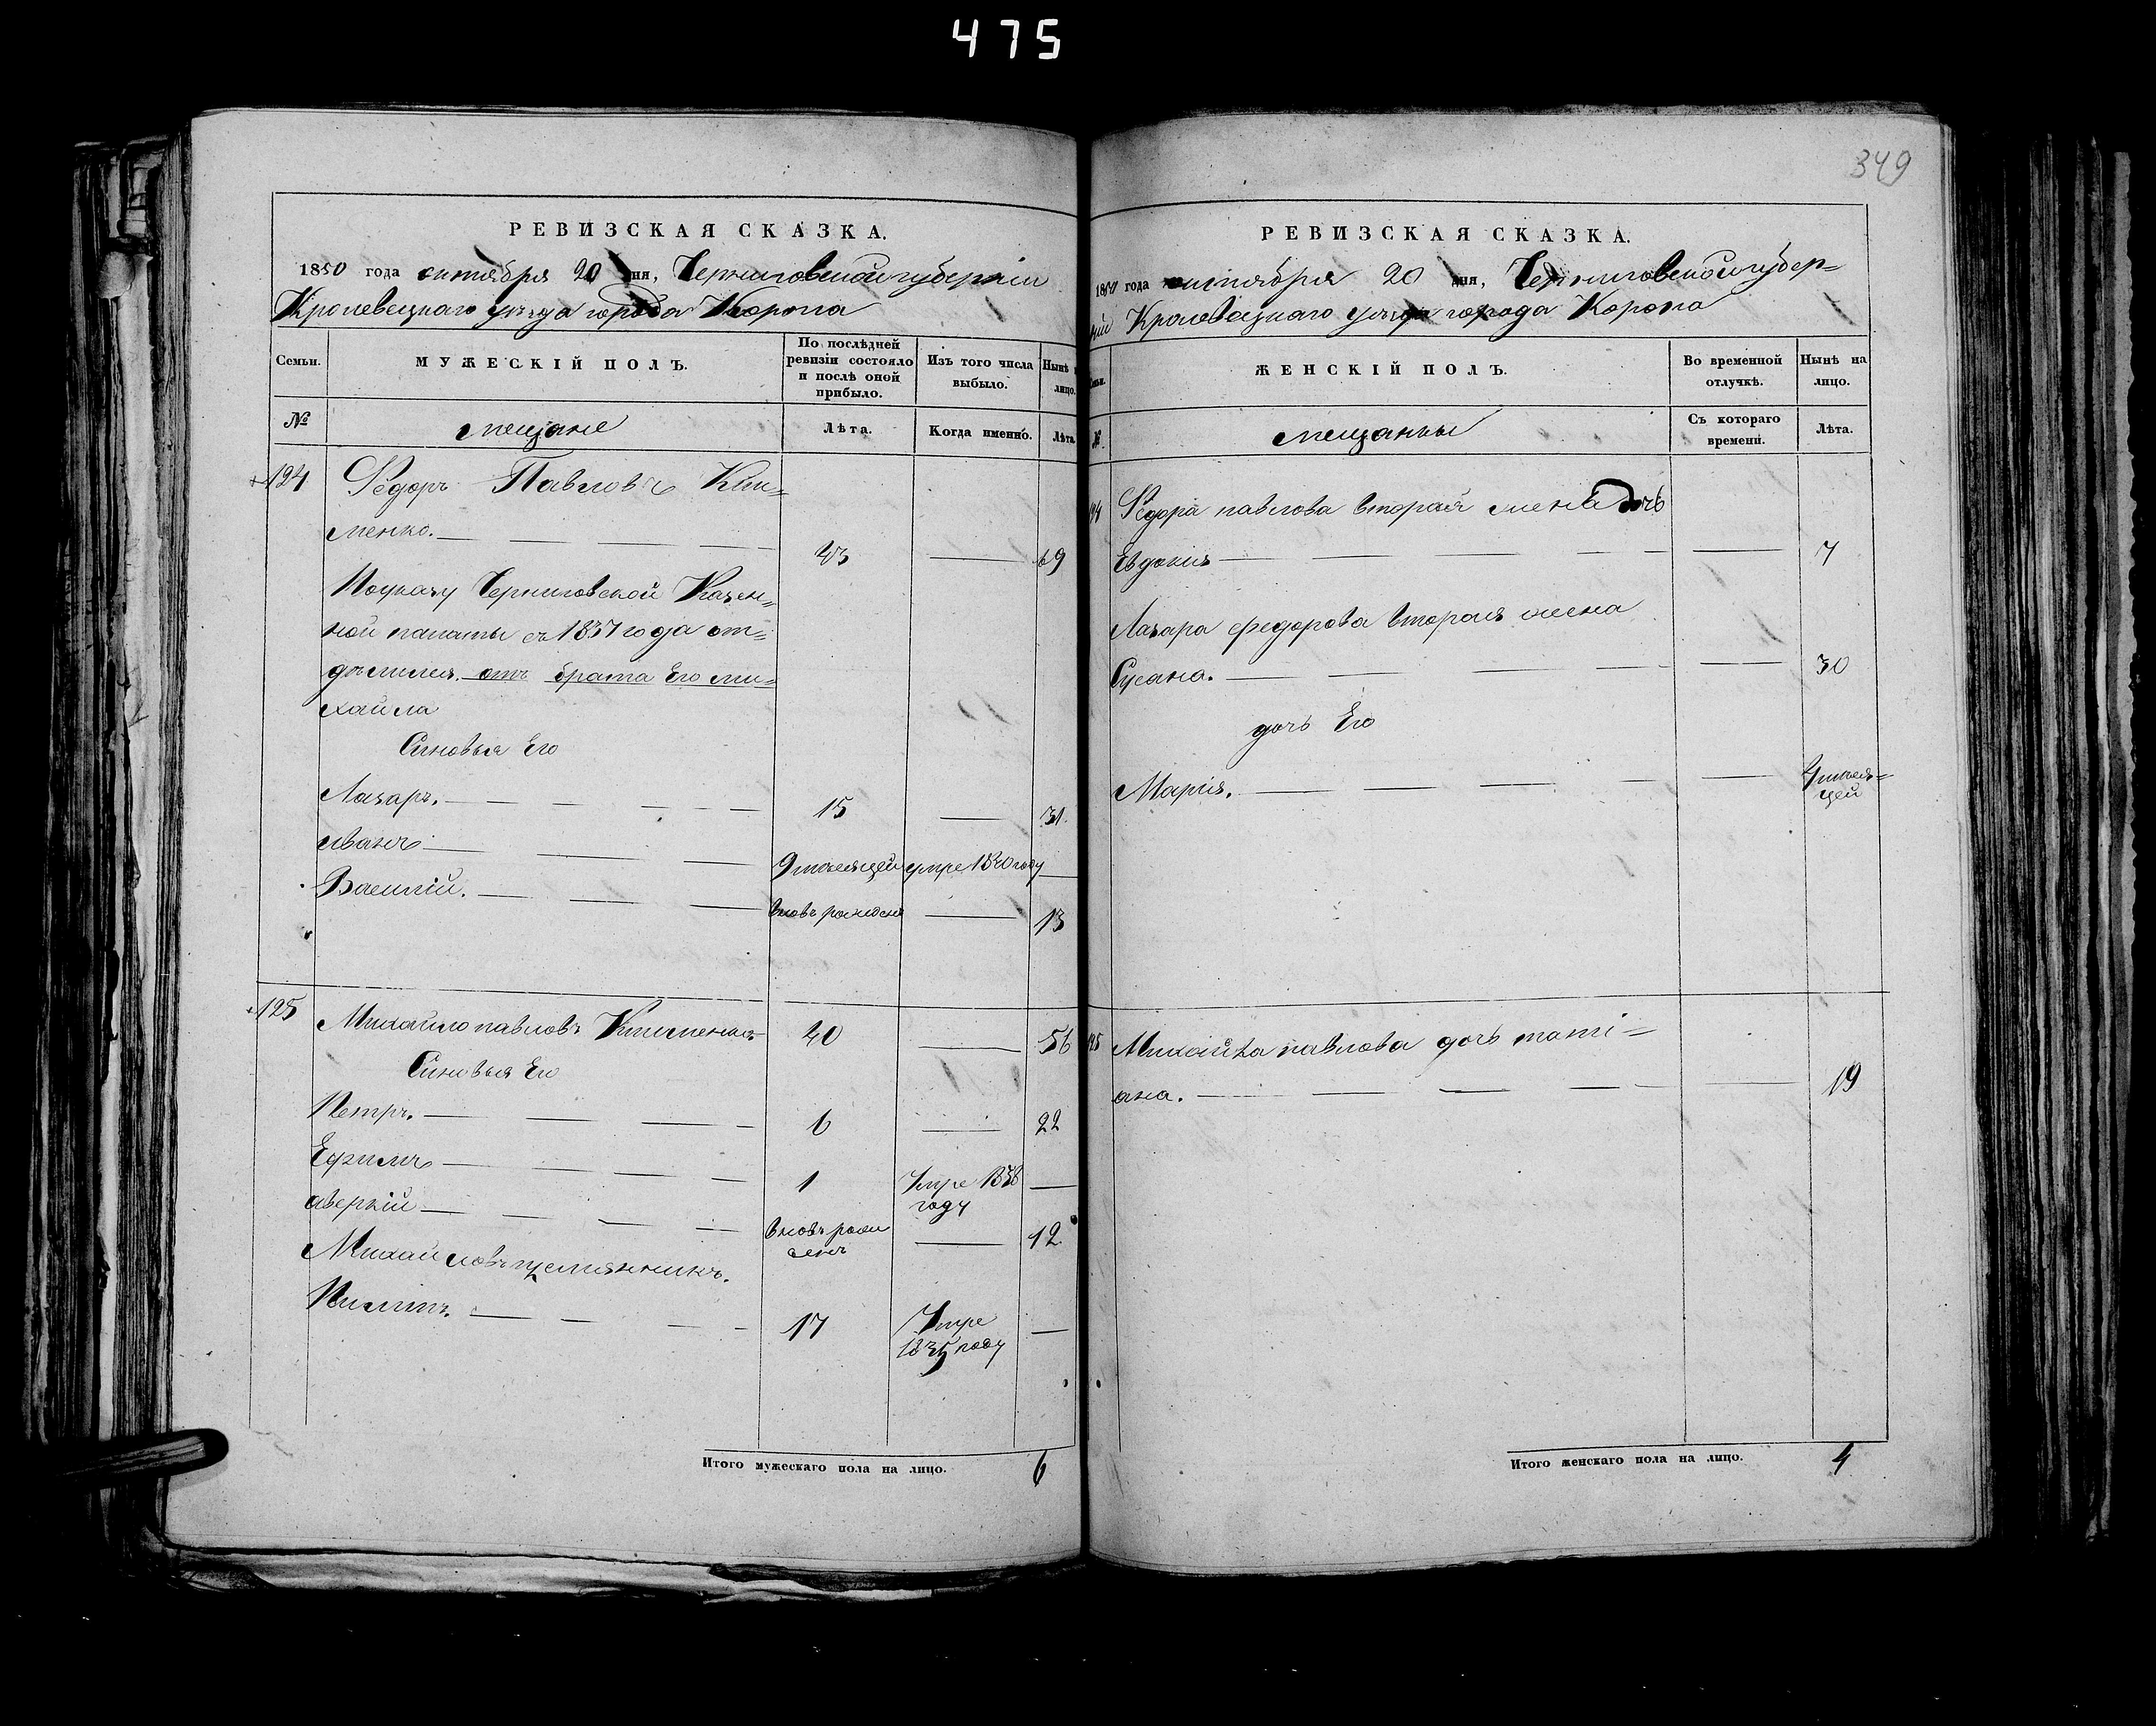 475
349
РЕВИЗСКАЯ СКАЗКА.
1850 года октября 20 дня, Черниговской губерніи
Кролевецкаго уезда города Коропа
Семьи.
МУЖЕСКІЙ ПОЛЪ.
По послѣдней ревизіи состояло и послѣ оной прибыло.
Изъ того числа выбыло.
Нынѣ лицо.
№
мещане
Лѣта.
Когда именно.
Лѣта
124
Федоръ Павловъ Кли=
менко.
43
69
По указу Черниговской Казен=
ной палаты съ 1837 года от=
делился отъ брата Его ми=
хайла
Синовья Его
Лазаръ.
15
31.
иванъ
9 месяцей
умре 1840 году
Василій.
вновь рожденъ
13
125
Михайло павловъ Клименко
40
56
Синовья Его
Петръ.
6
22
Ефимъ
1
Умре 1838
году
аверкій
вновь рож
денъ
12
Михайловъ племянникъ.
Пилипъ.
17
Умре
1835 году
Итого мужескаго пола на лицо.
6
РЕВИЗСКАЯ СКАЗКА.
1850 года октября 20 дня, Черниговской губер=
ніи Кролевецкаго уезда города Коропа
ЖЕНСКІЙ ПОЛЪ.
Во временной отлучкѣ.
Нынѣ на лицо.
№.
мещанки
Съ котораго времени.
Лѣта.
124
Федора павлова вторая жена дочь
Евдокия
7
Лазара федорова вторая жена
Сусана.
30
дочь Его
Марія.
4 месяцей
125
Михайла павлова дочь таті=
ана.
19
Итого женскаго пола на лицо.
4